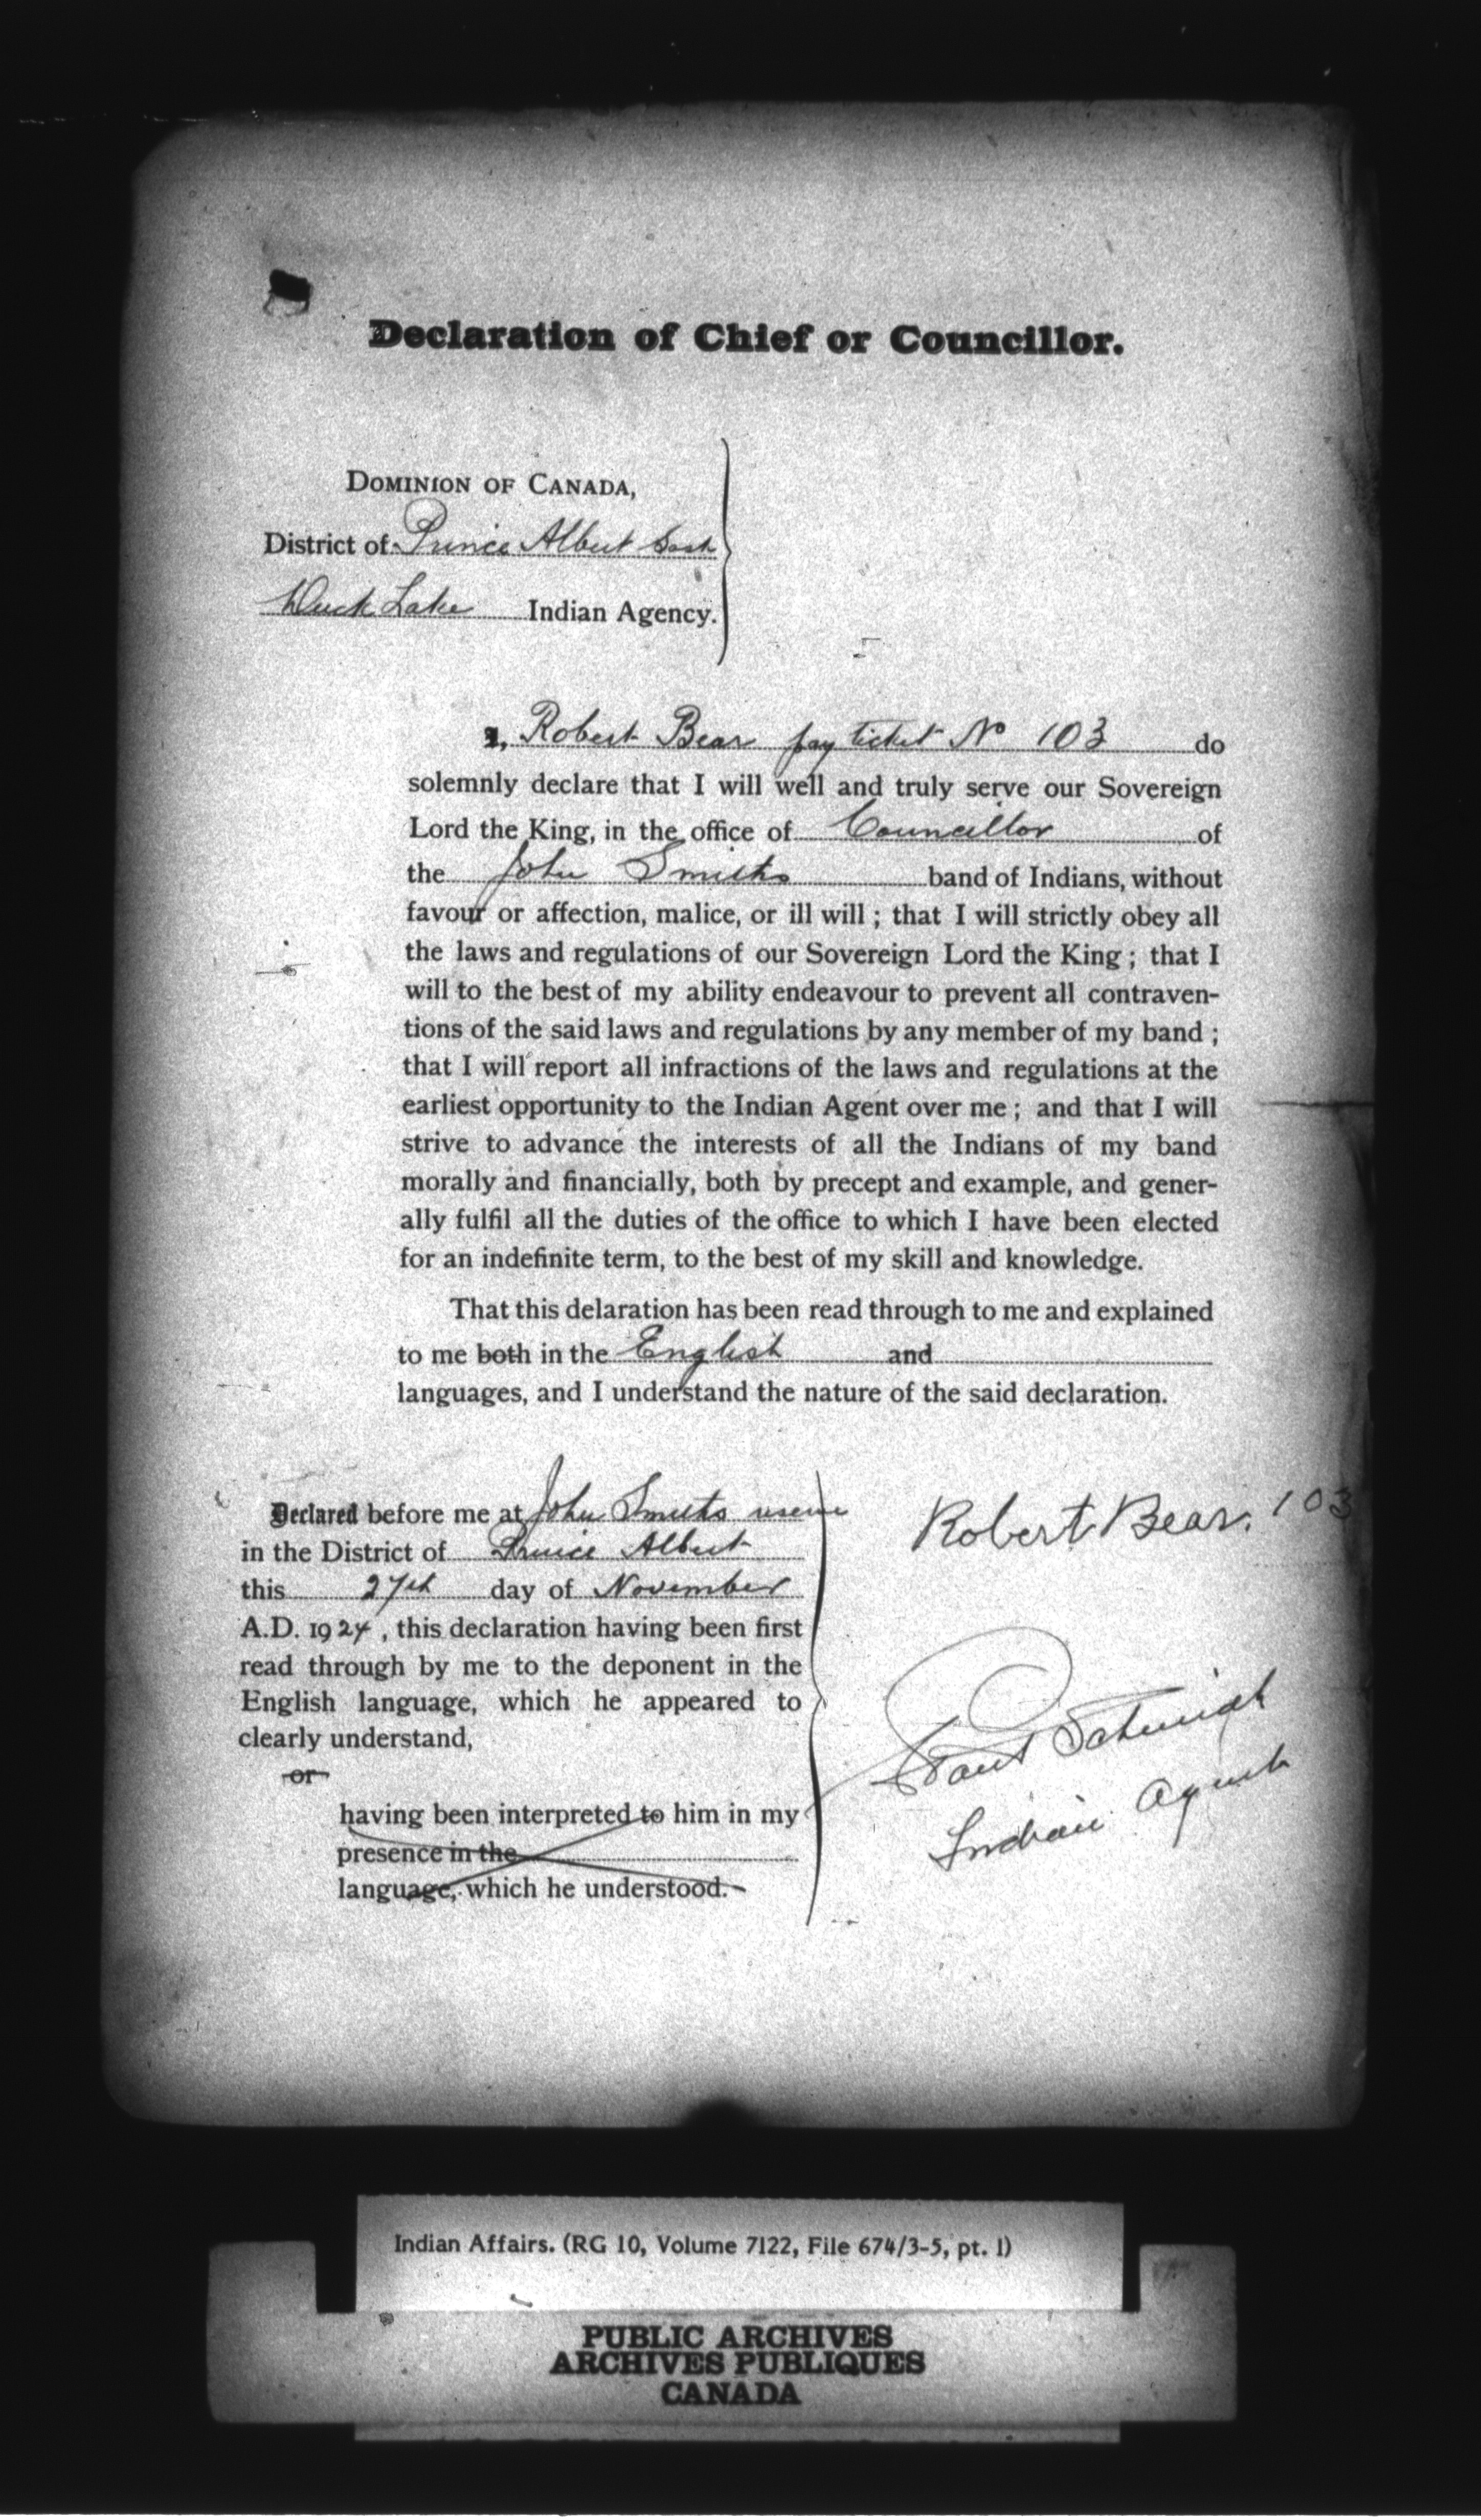 Declaration of Chief or Councillor.
DOMINION OF CANADA,
District of Prince Albert Sask
Duck Lake Indian Agency.
I, Robert Bear pay ticket No 103 do
solemnly declare that I will well and truly serve our Sovereign
Lord the King, in the office of Councillor of
the John Smiths band of Indians, without
favour or affection, malice, or ill will ; that I will strictly obey all
the laws and regulations of our Sovereign Lord the King ; that I
will to the best of my ability endeavour to prevent all contraven-
tions of the said laws and regulations by any member of my band ;
that I will report all infractions of the laws and regulations at the
earliest opportunity to the Indian Agent over me ; and that I will
strive to advance the interests of all the Indians of my band
morally and financially, both by precept and example, and gener-
ally fulfil all the duties of the office to which I have been elected
for an indefinite term, to the best of my skill and knowledge.
That this delaration has been read through to me and explained
to me both in the English and
languages, and I understand the nature of the said declaration.
Declared before me at John Smiths reserve
in the District of Prince Albert
this 27th day of November
A.D. 1924, this declaration having been first
read through by me to the deponent in the
English language, which he appeared to
clearly understand,
or
having been interpreted to him in my
presence in the
language, which he understood.
Robert Bear. 103
Schmidt
Indian Agent
Indian Affairs. (RG 10, Volume 7122, File 674/3-5, pt. 1)
PUBLIC ARCHIVES
ARCHIVES PUBLIQUES
CANADA